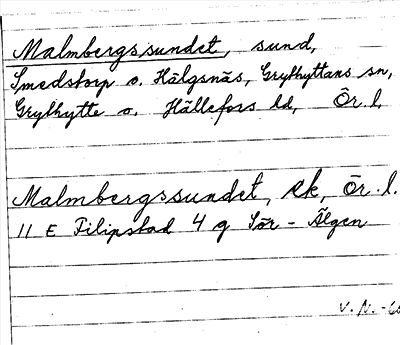 Malmbergssundet, sund,
Smedstorp o. Hälgsnäs, Grythyttans sn,
Grythytte o. Hällefors ld, Ör. l.
Malmbergssundet, ek, Ör. l.
11 E Filipstad 4 g Sör-Älgen
V. N. -60